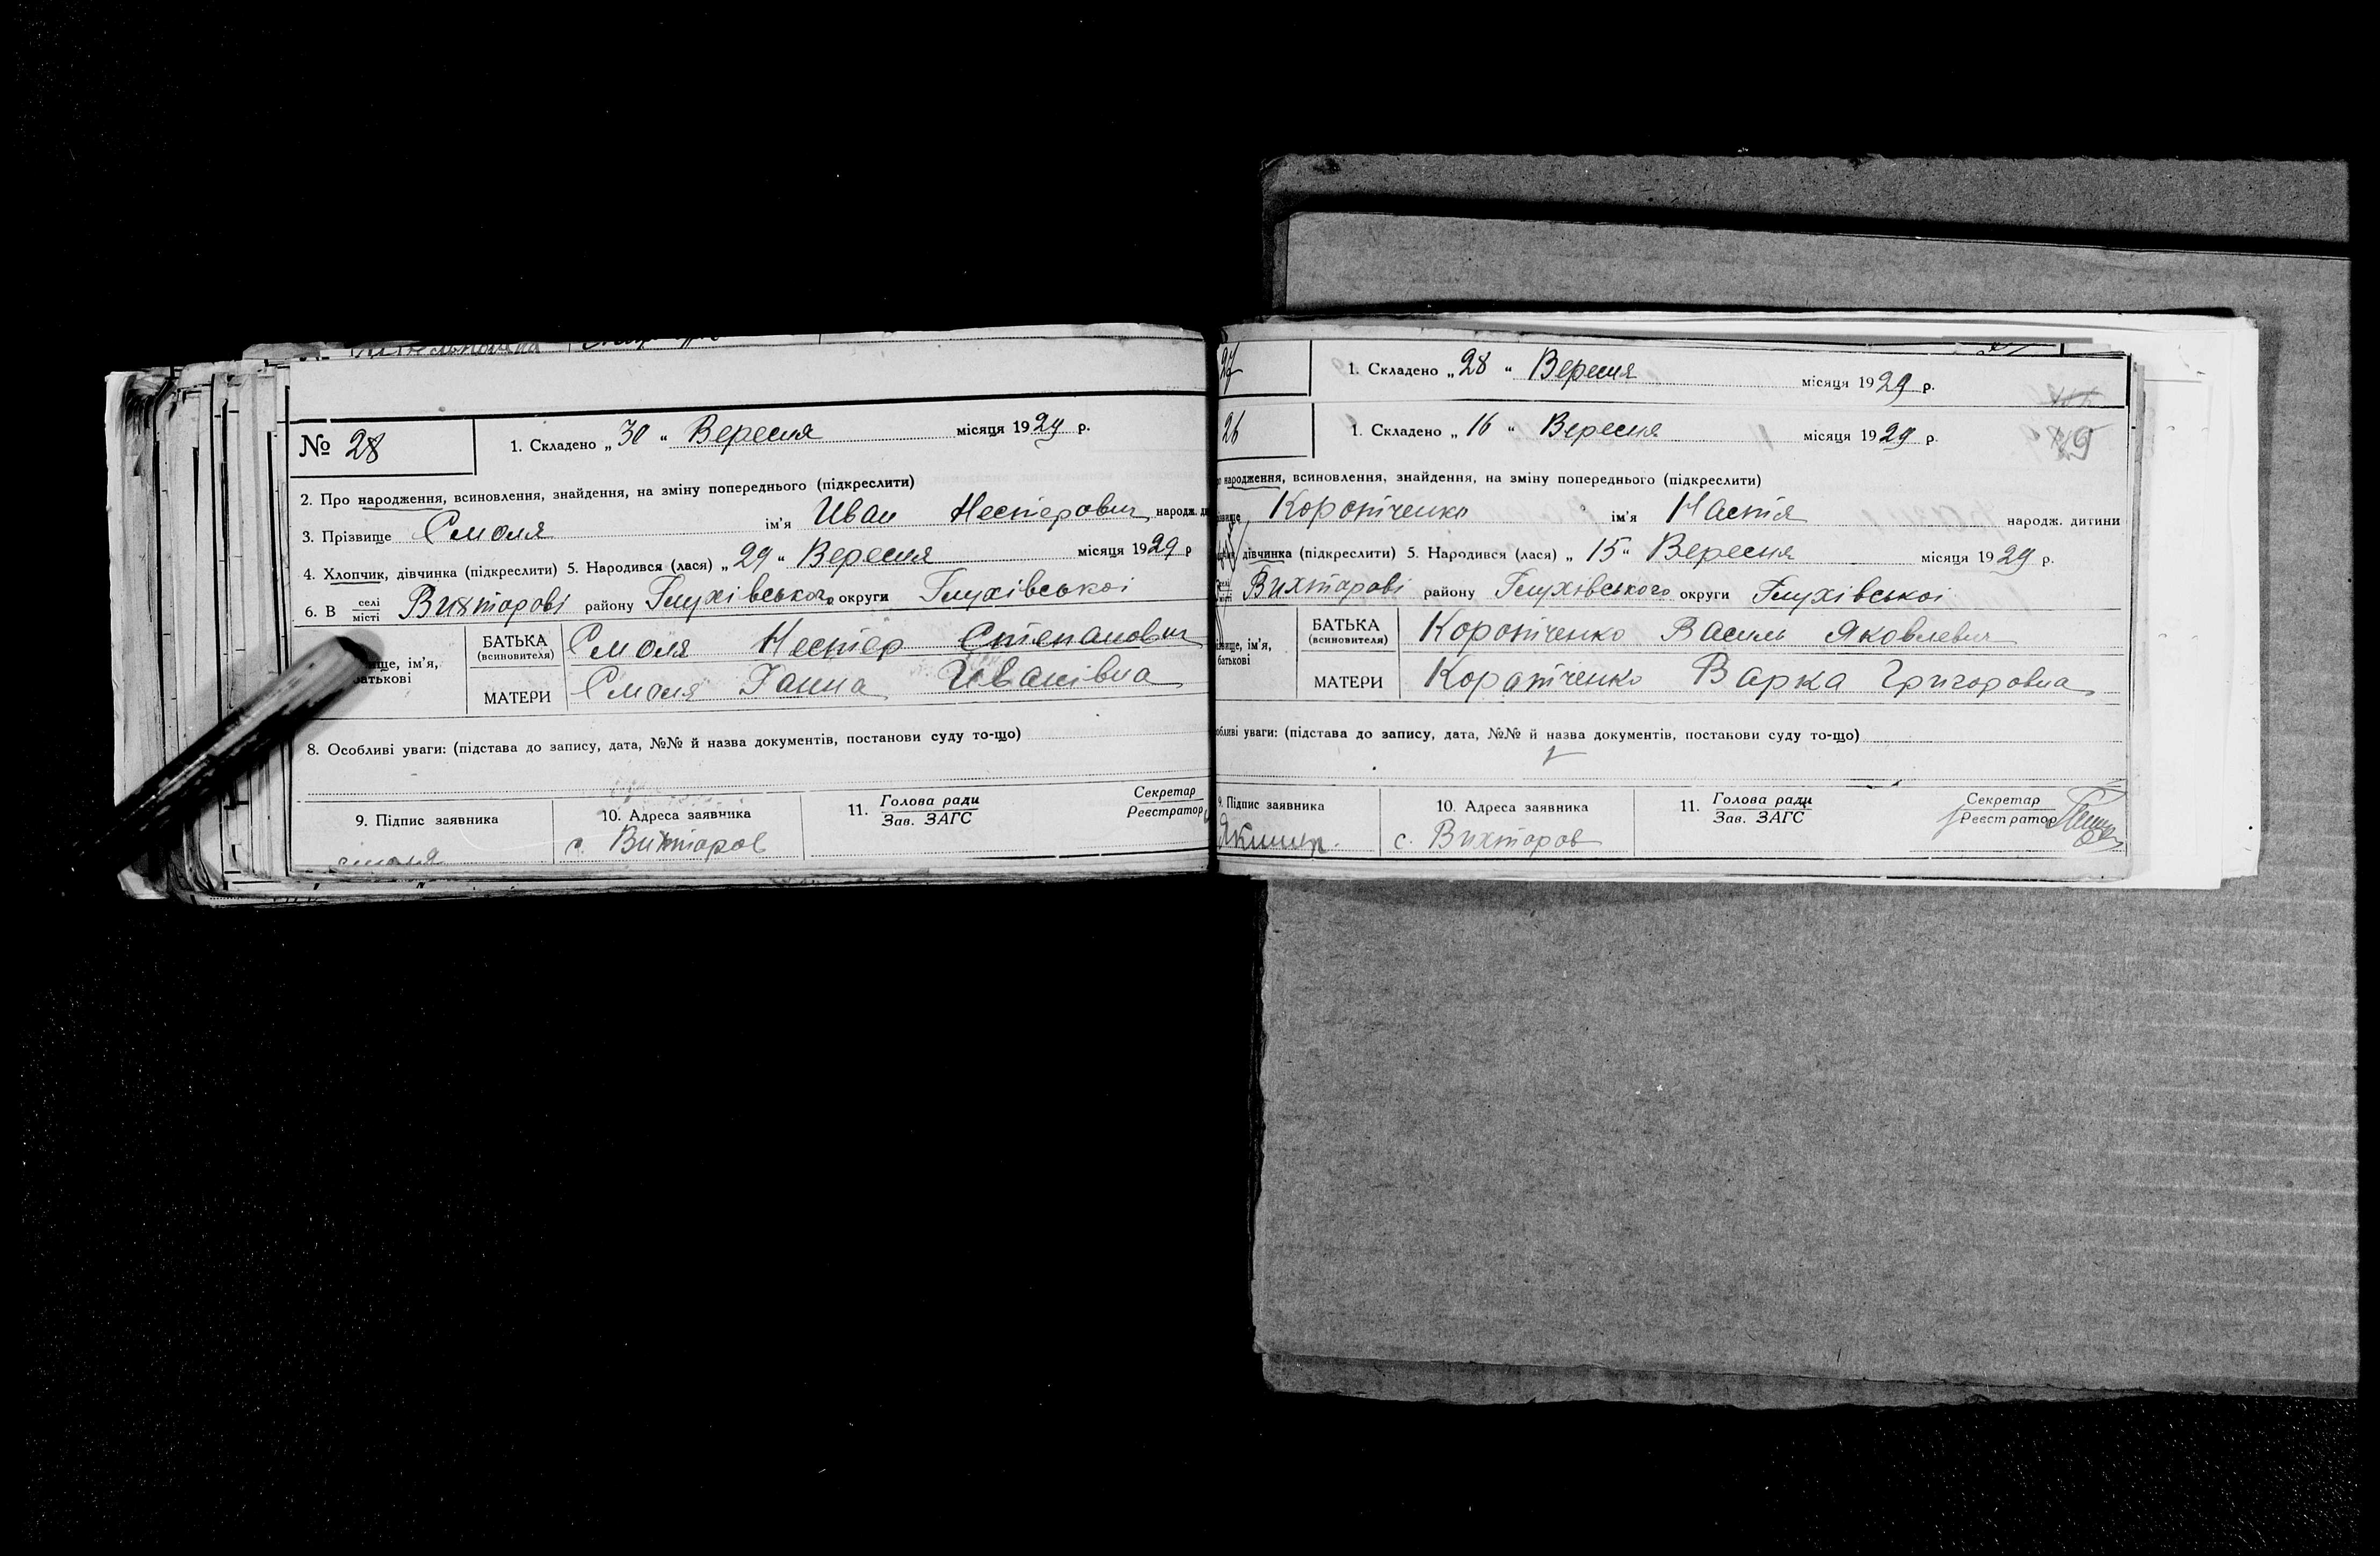 № 28
1. Складено „30“ Вересня місяця 1929 р.
2. Про народження, всиновлення, знайдення, на зміну попереднього (підкреслити)
3. Прізвище Смоля ім'я Иван Нестерович народж.
4. Хлопчик, дівчинка (підкреслити) 5. Народився (лася) „29“ Вересня місяця 1929 р
6. В селі місті Вихторові району Глухівського округи Глухівськоі
ім'я,
батькові
БАТЬКА (всиновителя) Смоля Нестер Степанович
МАТЕРИ Смоля Ганна Иванівна
8. Особливі уваги: (підстава до запису, дата, №№ й назва документів, постанови суду то-що)
9. Підпис заявника
10. Адреса заявника
11. Голова ради
Зав. ЗАГС
Секретар
Реєстратор
смоля
с. Вихторов
27
1. Складено „28“ Вересня місяця 1929 р.
26
1. Складено „16“ Вересня місяця 1929 р.
народження, всиновлення, знайдення, на зміну попереднього (підкреслити)
Коротченко ім'я Настя народж. дитини
дівчинка (підкреслити) 5. Народився (лася) „15“ Вересня місяця 1929 р.
Вихторові району Глухівського округи Глухівськоі
ім'я,
батькові
БАТЬКА (всиновителя) Коротченко Василь Яковлевич
МАТЕРИ Коратченко Варка Григоровна
уваги: (підстава до запису, дата, №№ й назва документів, постанови суду то-що)
9. Підпис заявника
10. Адреса заявника
11. Голова ради
Зав. ЗАГС
Секретар
Реєстратор
с. Вихторов